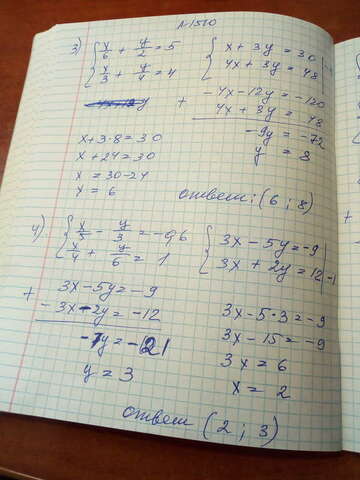 №1510
3) { x/6 + y/2 = 5   { x + 3y = 30
x/3 + y/4 = 4   4x + 3y = 48
+ -4x - 12y = -120
4x + 3y = 48
-9y = -72
y = 8
x + 3·8 = 30
x + 24 = 30
x = 30 - 24
x = 6
ответ: (6 ; 8)
4) { x/5 - y/3 = -0,6   { 3x - 5y = -9
x/4 + y/6 = 1   3x + 2y = 12 | -1
+ 3x - 5y = -9
-3x - 2y = -12
-7y = -21
y = 3
3x - 5·3 = -9
3x - 15 = -9
3x = 6
x = 2
ответ (2 ; 3)